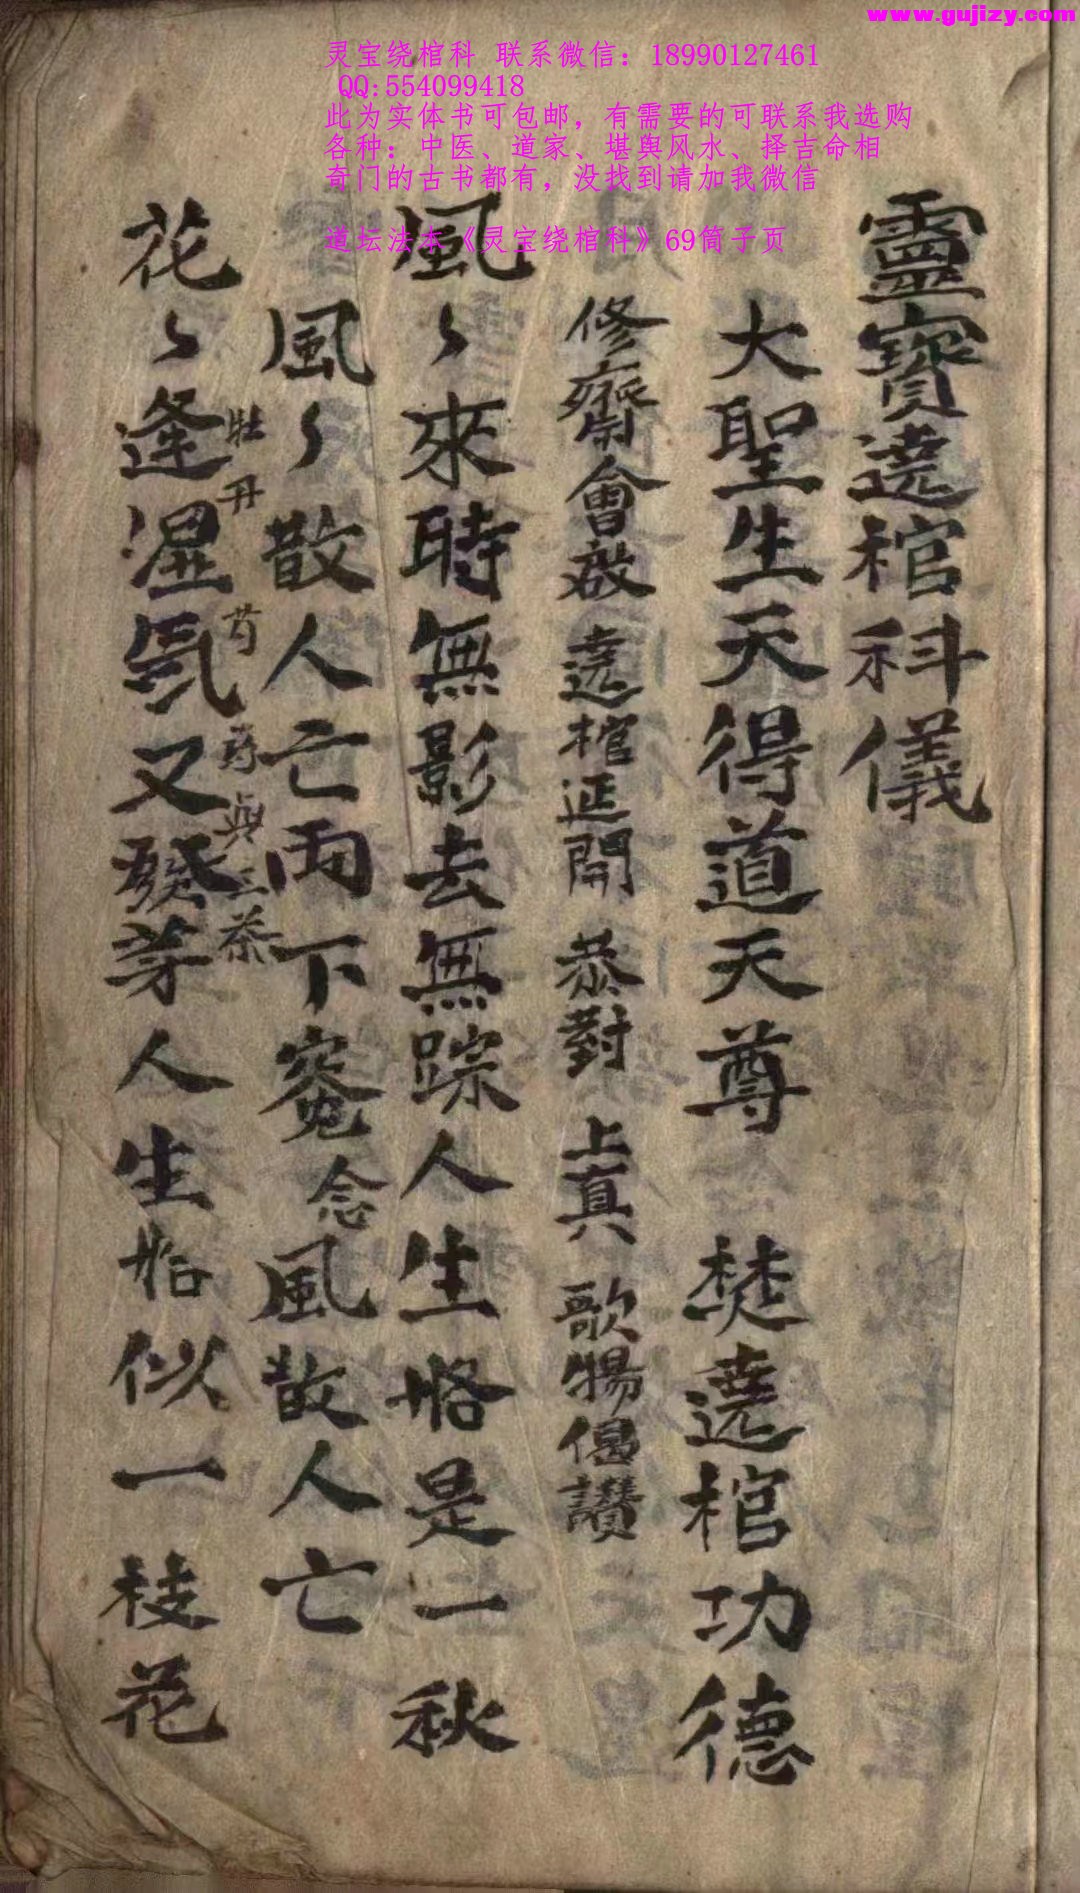 www.gujizy.com
灵宝绕棺科 联系微信：18990127461
QQ:554099418
此为实体书可包邮，有需要的可联系我选购
各种：中医、道家、堪舆风水、择吉命相
奇门的古书都有，没找到请加我微信
道坛法本《灵宝绕棺科》69筒子页
靈寳遶棺科儀
大聖生天得道天尊 焚遶棺功德
修齋會啟 遶棺延開 恭對 上真 歌揚偈讚
風〻來時無影去無踪人生恪是一秋
風〻散人亡兩下 念 風散人亡
牡丹 芍 葯與三茶
花〻逢濕氣又發芽人生恰似一枝花